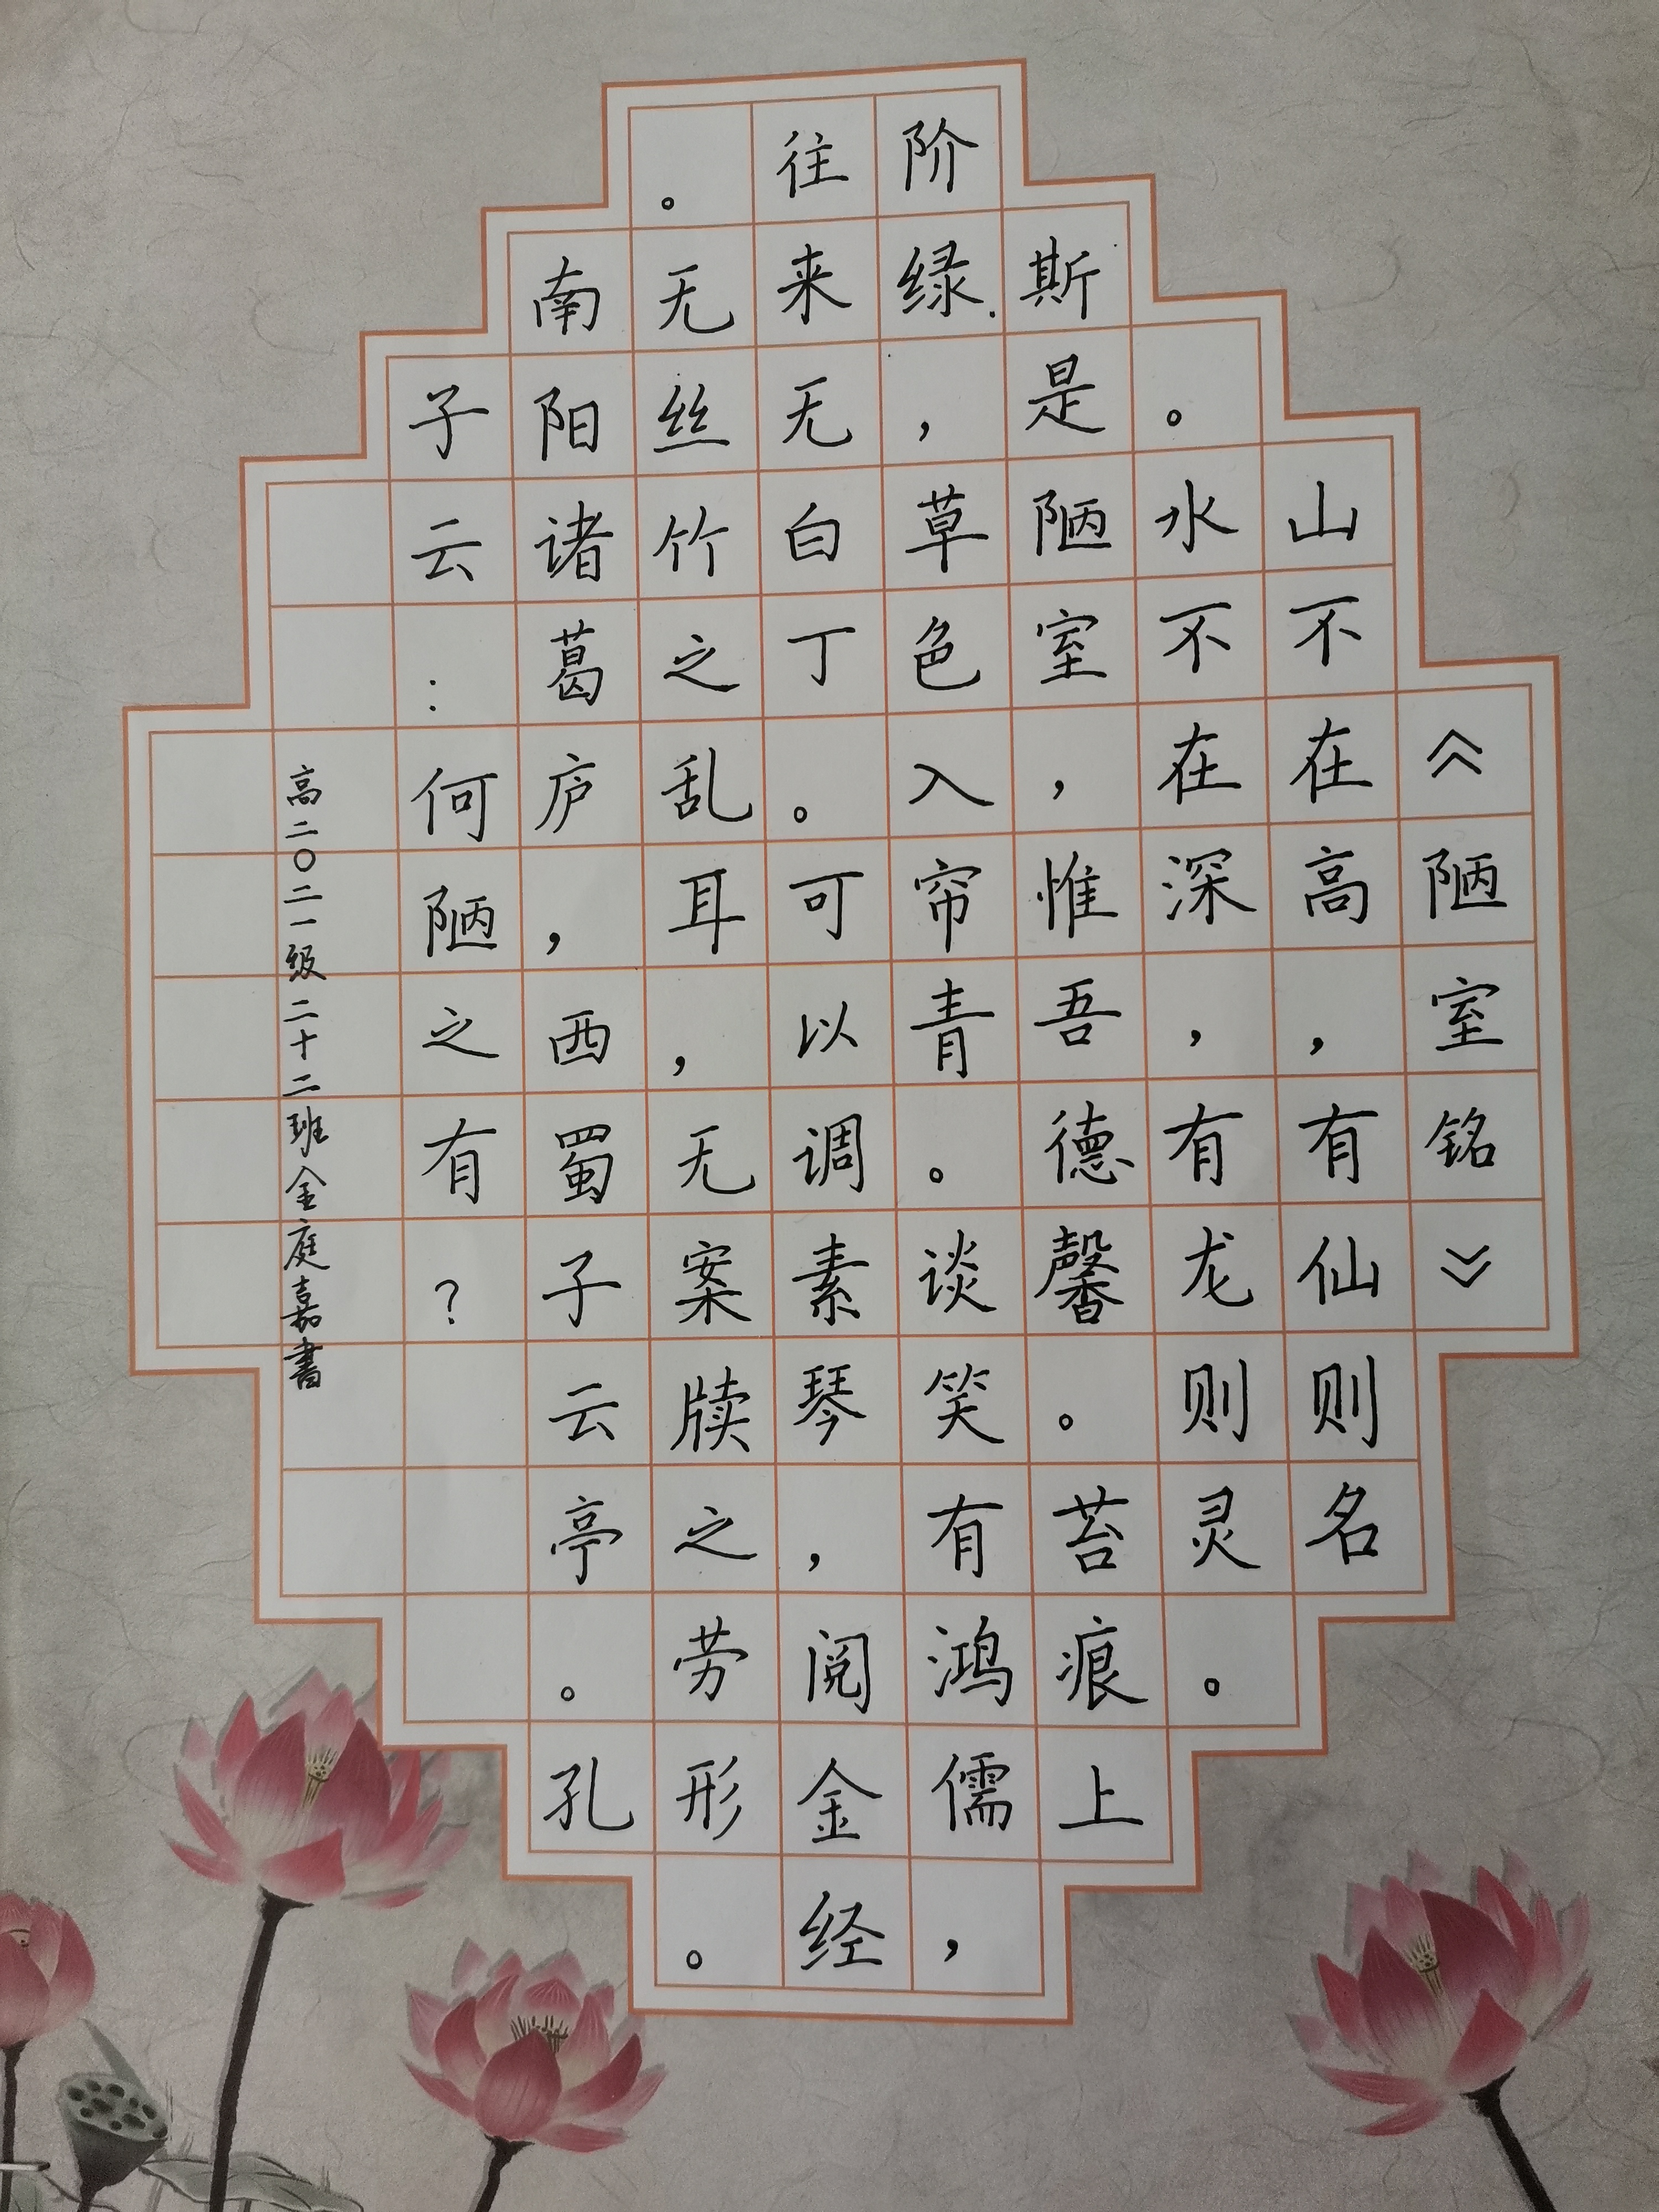 《陋室铭》
山不在高，有仙则名
。水不在深，有龙则灵。
斯是陋室，惟吾德馨。苔痕上
阶绿，草色入帘青。谈笑有鸿儒，
往来无白丁。可以调素琴，阅金经
。无丝竹之乱耳，无案牍之劳形。
南阳诸葛庐，西蜀子云亭。孔
子云：何陋之有？
高二〇二一级二十二班金庭嘉書